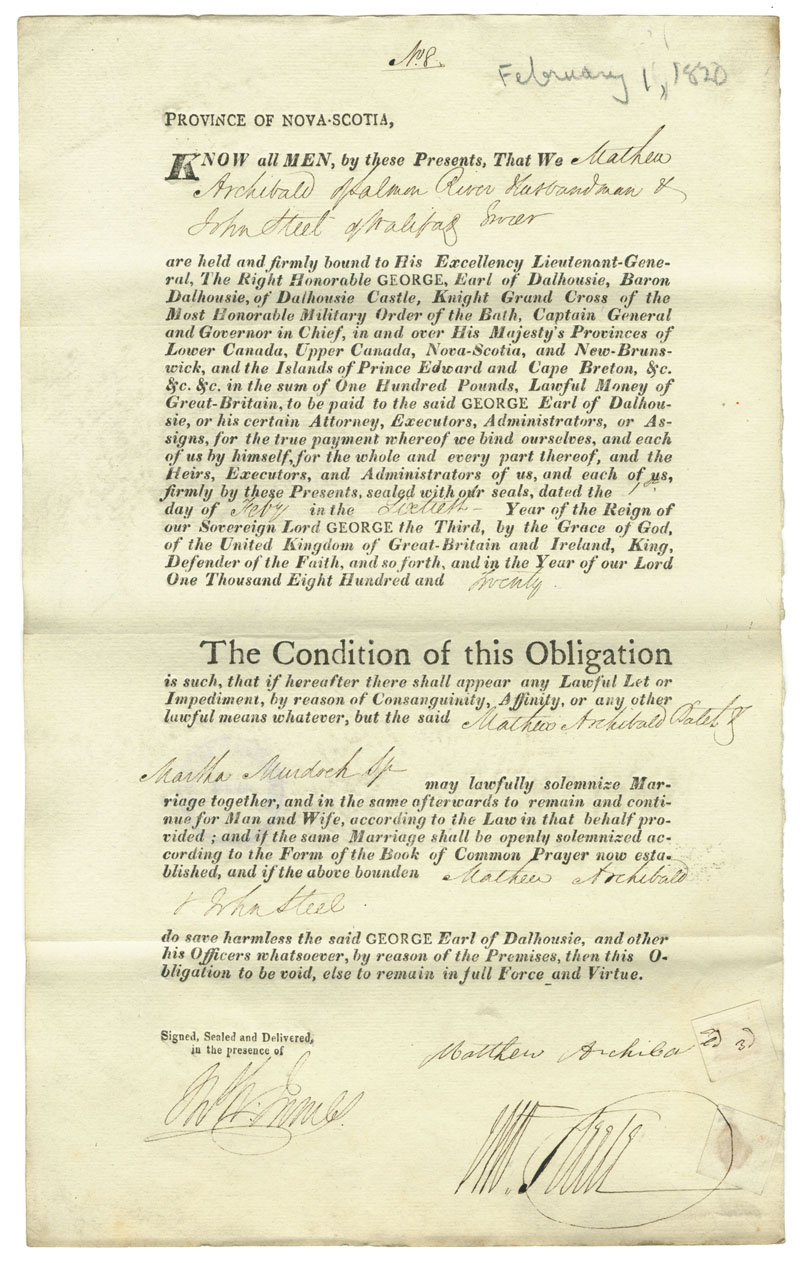 No. 8.
February 1, 1820
PROVINCE OF NOVA-SCOTIA,
KNOW all MEN, by these Presents, That We Mathew
Archibald of Salmon River Husbandman &
John Steel of Halifax
are held and firmly bound to His Excellency Lieutenant-Gene-
ral, The Right Honorable GEORGE, Earl of Dalhousie, Baron
Dalhousie, of Dalhousie Castle, Knight Grand Cross of the
Most Honorable Military Order of the Bath, Captain General
and Governor in Chief, in and over His Majesty's Provinces of
Lower Canada, Upper Canada, Nova-Scotia, and New-Bruns-
wick, and the Islands of Prince Edward and Cape Breton, &c.
&c. &c. in the sum of One Hundred Pounds, Lawful Money of
Great-Britain, to be paid to the said GEORGE Earl of Dalhou-
sie, or his certain Attorney, Executors, Administrators, or As-
signs, for the true payment whereof we bind ourselves, and each
of us by himself, for the whole and every part thereof, and the
Heirs, Executors, and Administrators of us, and each of us,
firmly by these Presents, sealed with our seals, dated the 1st
day of Feby in the Sixtieth Year of the Reign of
our Sovereign Lord GEORGE the Third, by the Grace of God,
of the United Kingdom of Great-Britain and Ireland, King,
Defender of the Faith, and so forth, and in the Year of our Lord
One Thousand Eight Hundred and Twenty.
The Condition of this Obligation
is such, that if hereafter there shall appear any Lawful Let or
Impediment, by reason of Consanguinity, Affinity, or any other
lawful means whatever, but the said Mathew Archibald Batch &
Martha Murdoch Sp
may lawfully solemnize Mar-
riage together, and in the same afterwards to remain and conti-
nue for Man and Wife, according to the Law in that behalf pro-
vided ; and if the same Marriage shall be openly solemnized ac-
cording to the Form of the Book of Common Prayer now esta-
blished, and if the above bounden Mathew Archibald
& John Steel.
do save harmless the said GEORGE Earl of Dalhousie, and other
his Officers whatsoever, by reason of the Premises, then this O-
bligation to be void, else to remain in full Force and Virtue.
Signed, Sealed and Delivered,
in the presence of
Matthew Archibald